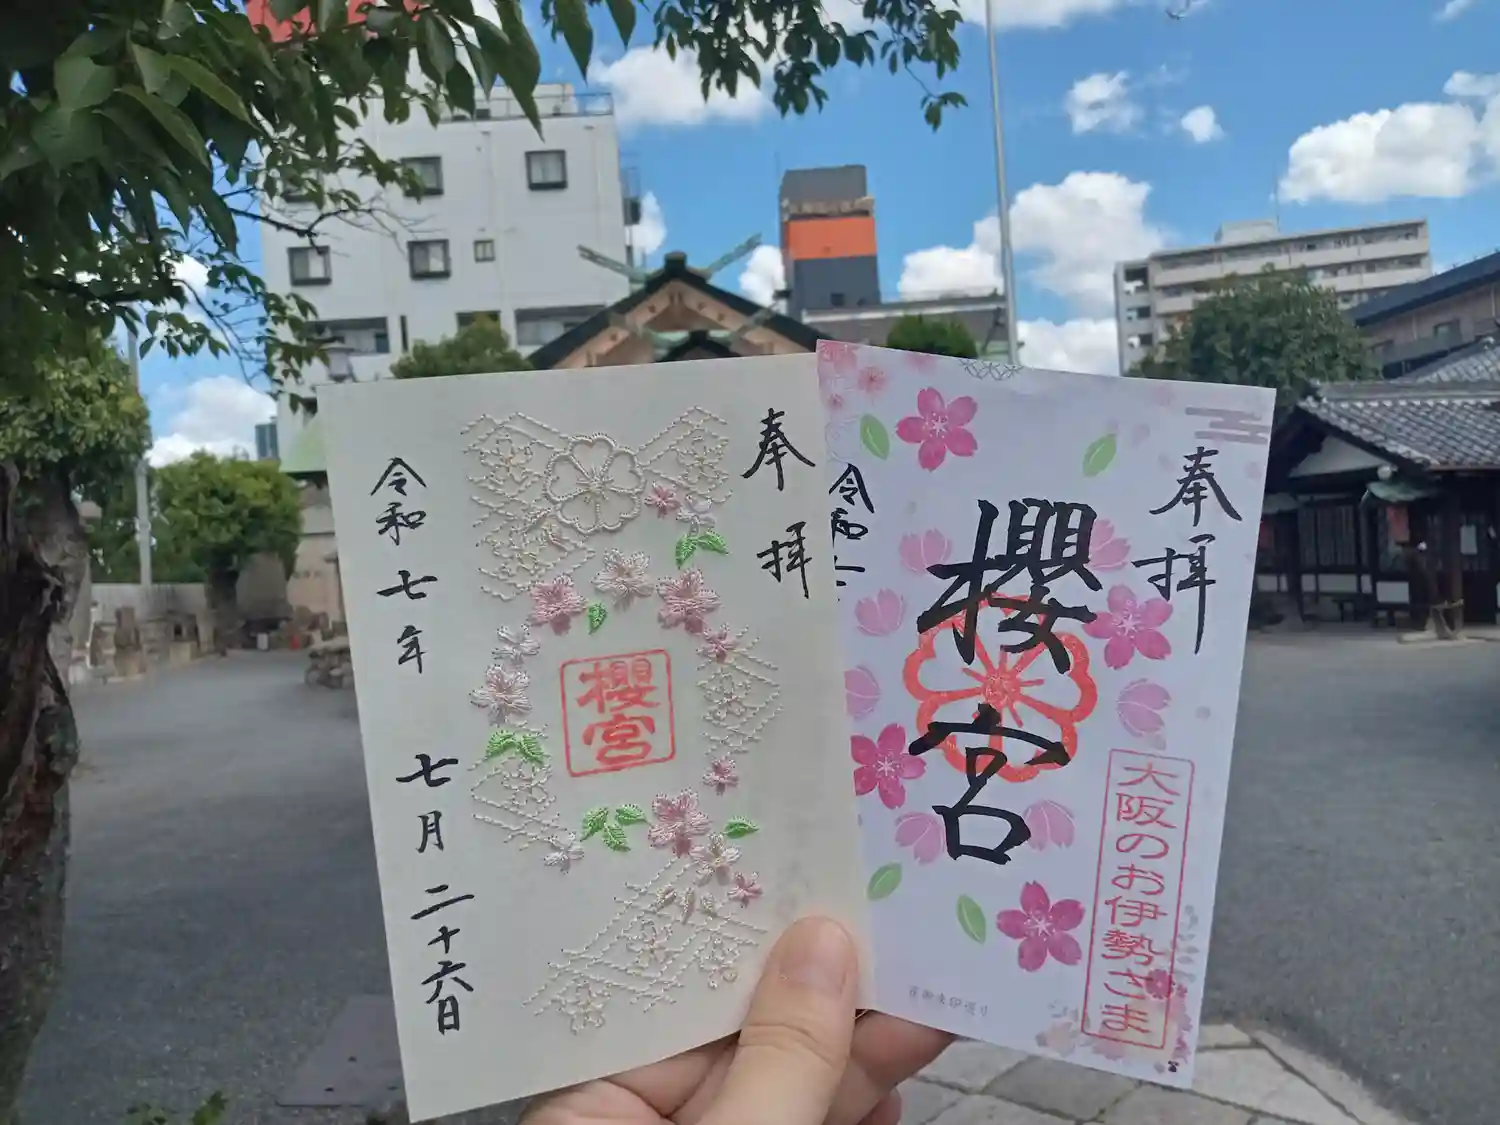 奉拝
櫻宮
令和七年
七月二十六日
奉拝
櫻宮
令和七
大阪のお伊勢さま